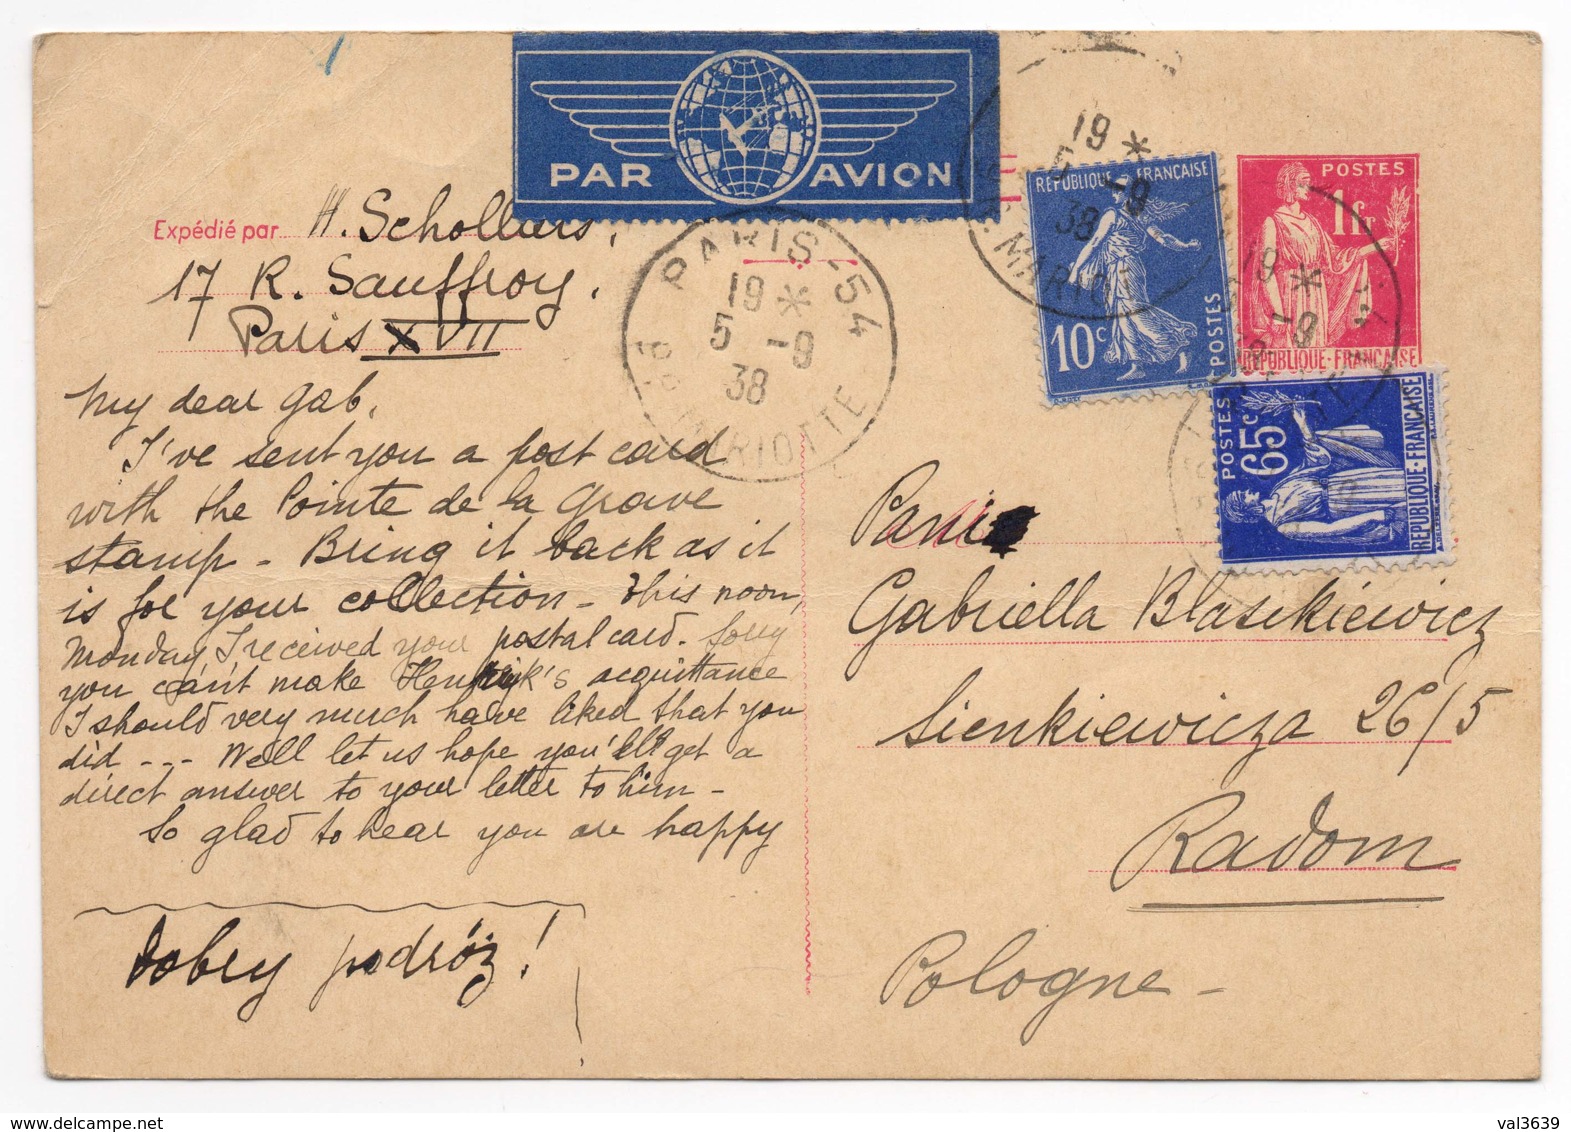 PAR AVION
Expédié par H. Schollaers,
17 R. Sauffroy.
Paris XVII
My dear Gab.
I've sent you a post card
with the Pointe de la Grave
stamp - Bring it back as it
is for your collection - This noon,
Monday, I received your postal card. Sorry
you can't make Henryk's acquittance
I should very much have liked that you
did --- Well let us hope you'll get a
direct answer to your letter to him -
So glad to hear you are happy
Dobry podróż!
PARIS - 54
19 *
5 -9
38
MARIOTTE
19 *
5 -9
38
MARIOT
RÉPUBLIQUE FRANÇAISE
10c
POSTES
POSTES
1fr
RÉPUBLIQUE·FRANÇAISE
19 *
-9
POSTES
65c
RÉPUBLIQUE·FRANÇAISE
Gabriella Blaszkiewicz
Sienkiewicza 26/5
Radom
Pologne -
www.delcampe.net
val3639